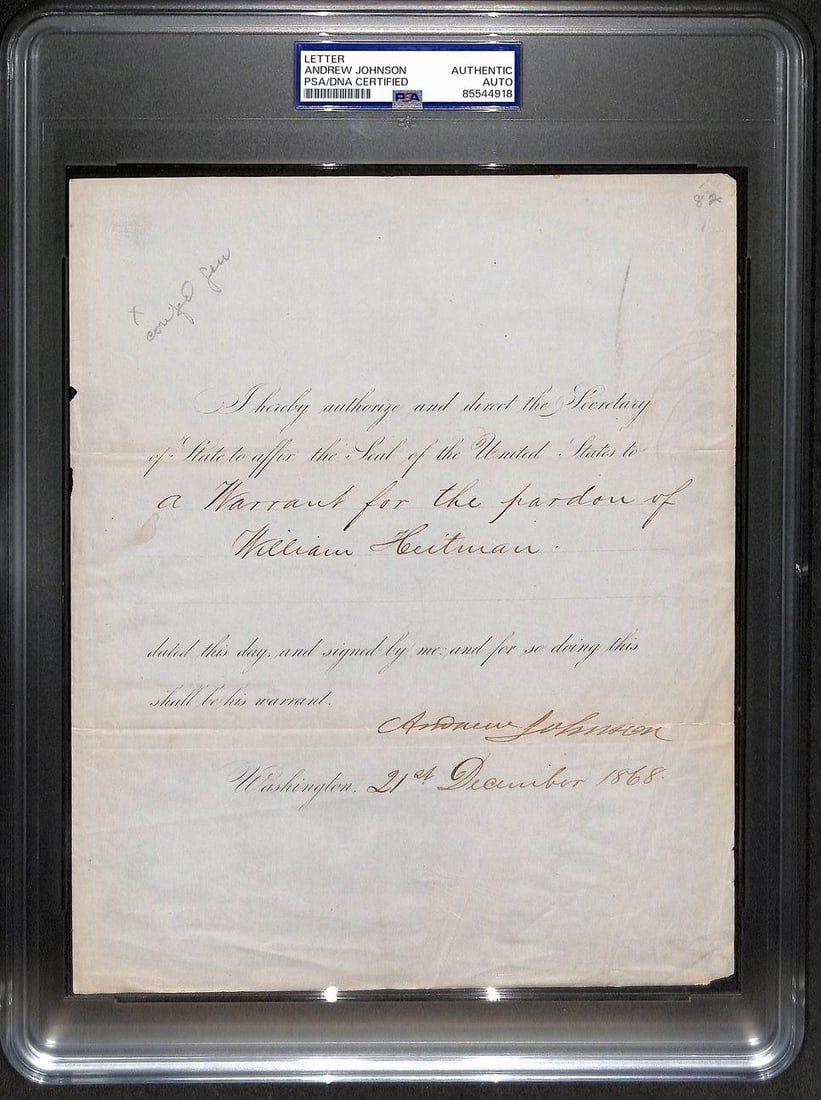 LETTER
ANDREW JOHNSON
PSA/DNA CERTIFIED
AUTHENTIC
AUTO
85544918
PSA
82
x
confed gen
I hereby authorize and direct the Secretary
of State to affix the Seal of the United States to
a Warrant for the pardon of
William Heitman.
dated this day, and signed by me: and for so doing this
shall be his warrant.
Andrew Johnson
Washington, 21st December 1868.